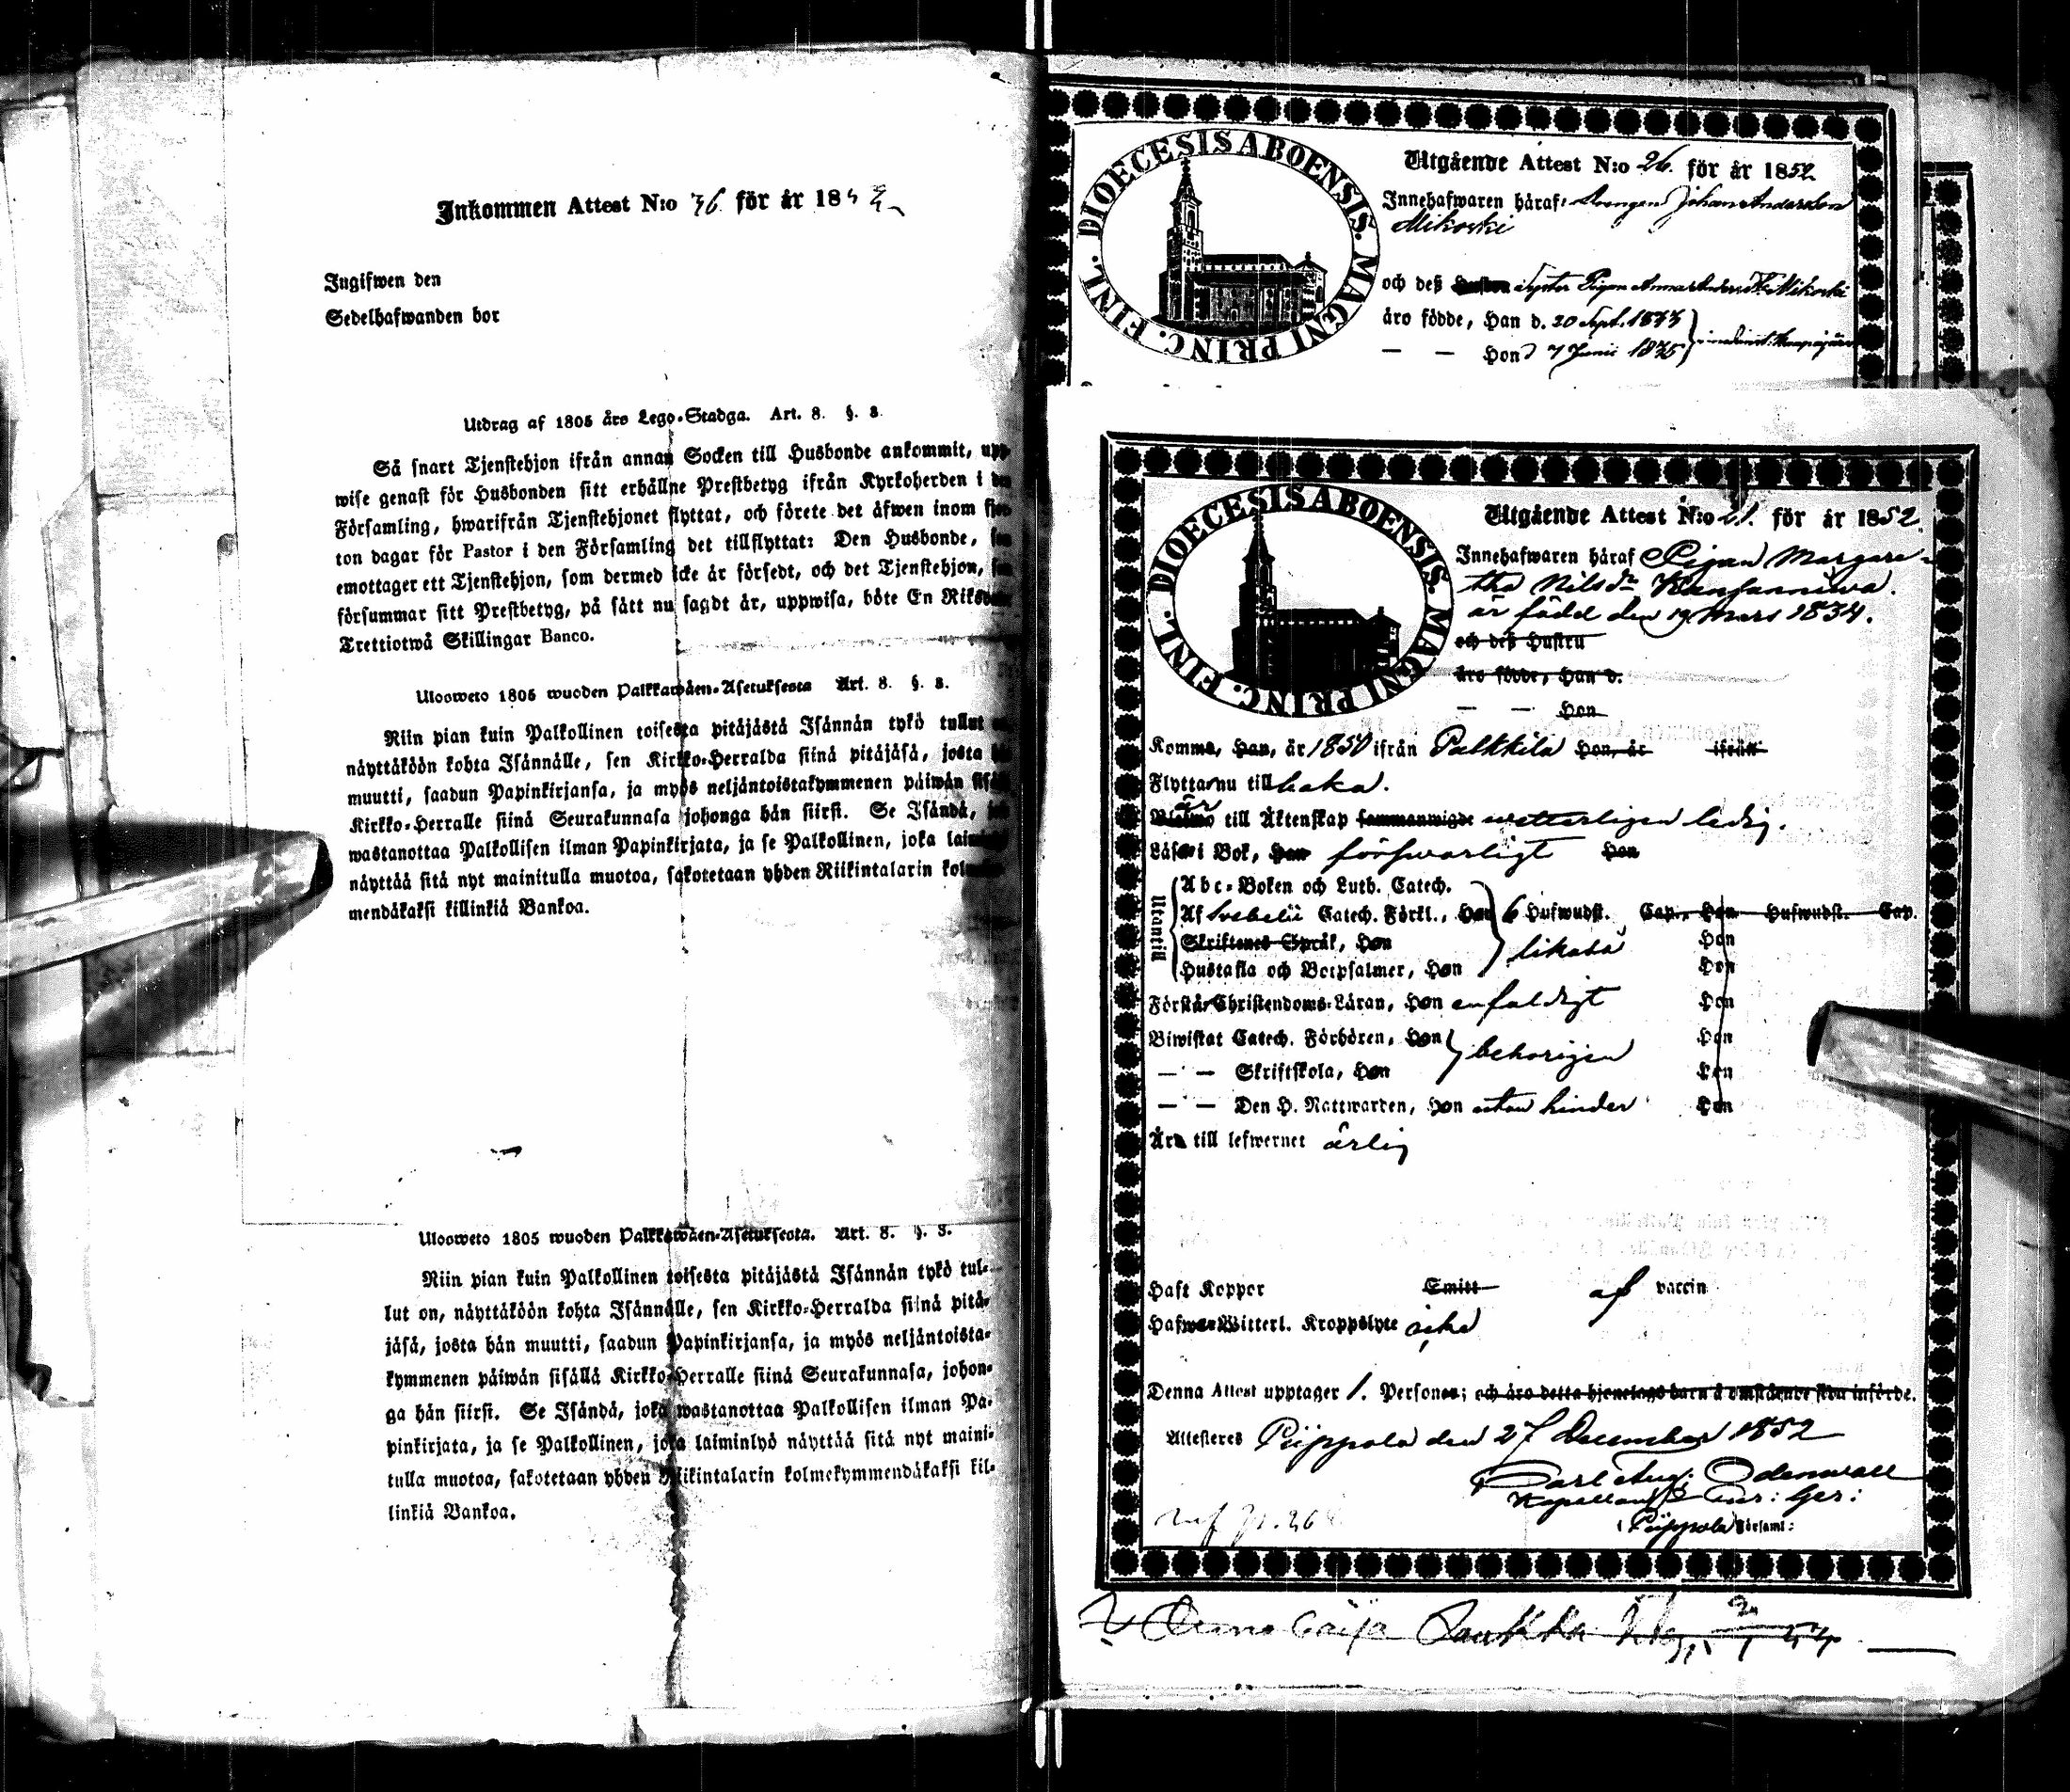 Inkommen Attest N:o 76 för år 185
Ingifwen den
Sedelhafwanden bor
Utdrag af 1805 års Lego-Stadga. Art. 8. §. 3.
Så snart Tjenstehjon ifrån annan Socken till Husbonde ankommit, upp-
wise genast för Husbonden sitt erhållne Prestbetyg ifrån Kyrkoherden i den
Församling, hwarifrån Tjenstehjonet flyttat, och förete det äfwen inom fjor-
ton dagar för Pastor i den Församling det tillflyttat: Den Husbonde, som
emottager ett Tjenstehjon, som dermed icke är försedt, och det Tjenstehjon, som
försummar sitt Prestbetyg, på sätt nu sagdt är, uppwisa, böte En Riksdaler
Trettiotwå Skillingar Banco.
Ulosweto 1805 wuoden Palkkawäen-Asetuksesta Art. 8. §. 3.
Niin pian kuin Palkollinen toisesta pitäjästä Isännän tykö tullut on,
näyttäköön kohta Isännälle, sen Kirkko-Herralda siinä pitäjäsä, josta hän
muutti, saadun Papinkirjansa, ja myös neljäntoistakymmenen päiwän sisällä
Kirkko-Herralle siinä Seurakunnasa johonga hän siirsi. Se Isändä, joka
wastanottaa Palkollisen ilman Papinkirjata, ja se Palkollinen, joka laiminlyö
näyttää sitä nyt mainitulla muotoa, sakotetaan yhden Riikintalarin kolmekym-
mendäkaksi killinkiä Bankoa.
Ulosweto 1805 wuoden Palkkawäen-Asetuksesta. Art. 8. §. 3.
Niin pian kuin Palkollinen toisesta pitäjästä Isännän tykö tul-
lut on, näyttäköön kohta Isännälle, sen Kirkko-Herralda siinä pitä-
jäsä, josta hän muutti, saadun Papinkirjansa, ja myös neljäntoista-
kymmenen päiwän sisällä Kirkko-Herralle siinä Seurakunnasa, johon-
ga hän siirsi. Se Isändä, joka wastanottaa Palkollisen ilman Pa-
pinkirjata, ja se Palkollinen, joka laiminlyö näyttää sitä nyt maini-
tulla muotoa, sakotetaan yhden Riikintalarin kolmekymmendäkaksi kil-
linkiä Bankoa.
DIOECESIS ABOENSIS. MAGNI PRINC. FINL.
Utgående Attest N:o 26. för år 1852
Innehafwaren häraf: Drengen Johan Andersson
Mikoski
och deß Hustru Syster Pigan Anna Anders Dr Mikoski
äro födde, Han d. 20 Sept. 1833
— — Hon d 7 Junii 1835
DIOECESIS ABOENSIS. MAGNI PRINC. FINL.
Utgående Attest N:o 21. för år 1852.
Innehafwaren häraf Pigan Margare-
tha Nils dr
är född den 19 Mars 1834.
och deß Hustru
äro födde, Han d.
— — Hon
Komma, Han, år 1850 ifrån Pulkkila Hon, år ifrån
Flytta nu till
är
till Äktenskap sammanwigde wetterligen ledig.
Läsa i Bok, Han förswarligt Hon
Utantill
Abc-Boken och Luth. Catech.
Af Svebelii Catech. Förkl., Han 6 Hufwudst. Cap., Hon Hufwudst. Cap.
Skriftenes Språk, Hon likaså Hon
Hustafla och Botpsalmer, Hon Hon
Förstår Christendoms-Läran, Hon enfaldigt Hon
Biwistat Catech. Förhören, Hon behörigen Hon
— — Skriftskola, Hon Hon
— — Den H. Nattwarden, Hon utan hinder Hon
Är till lefwernet ärlig
Haft Koppor Smitt af vaccin
Hafwa Witterl. Kroppslyte icke
Denna Attest upptager 1. Person; och äro detta hjonelags barn å omstående sida införde.
Attesteres Piippola den 27 December 1852
Carl Aug. Odenwall
Piippola Församl: